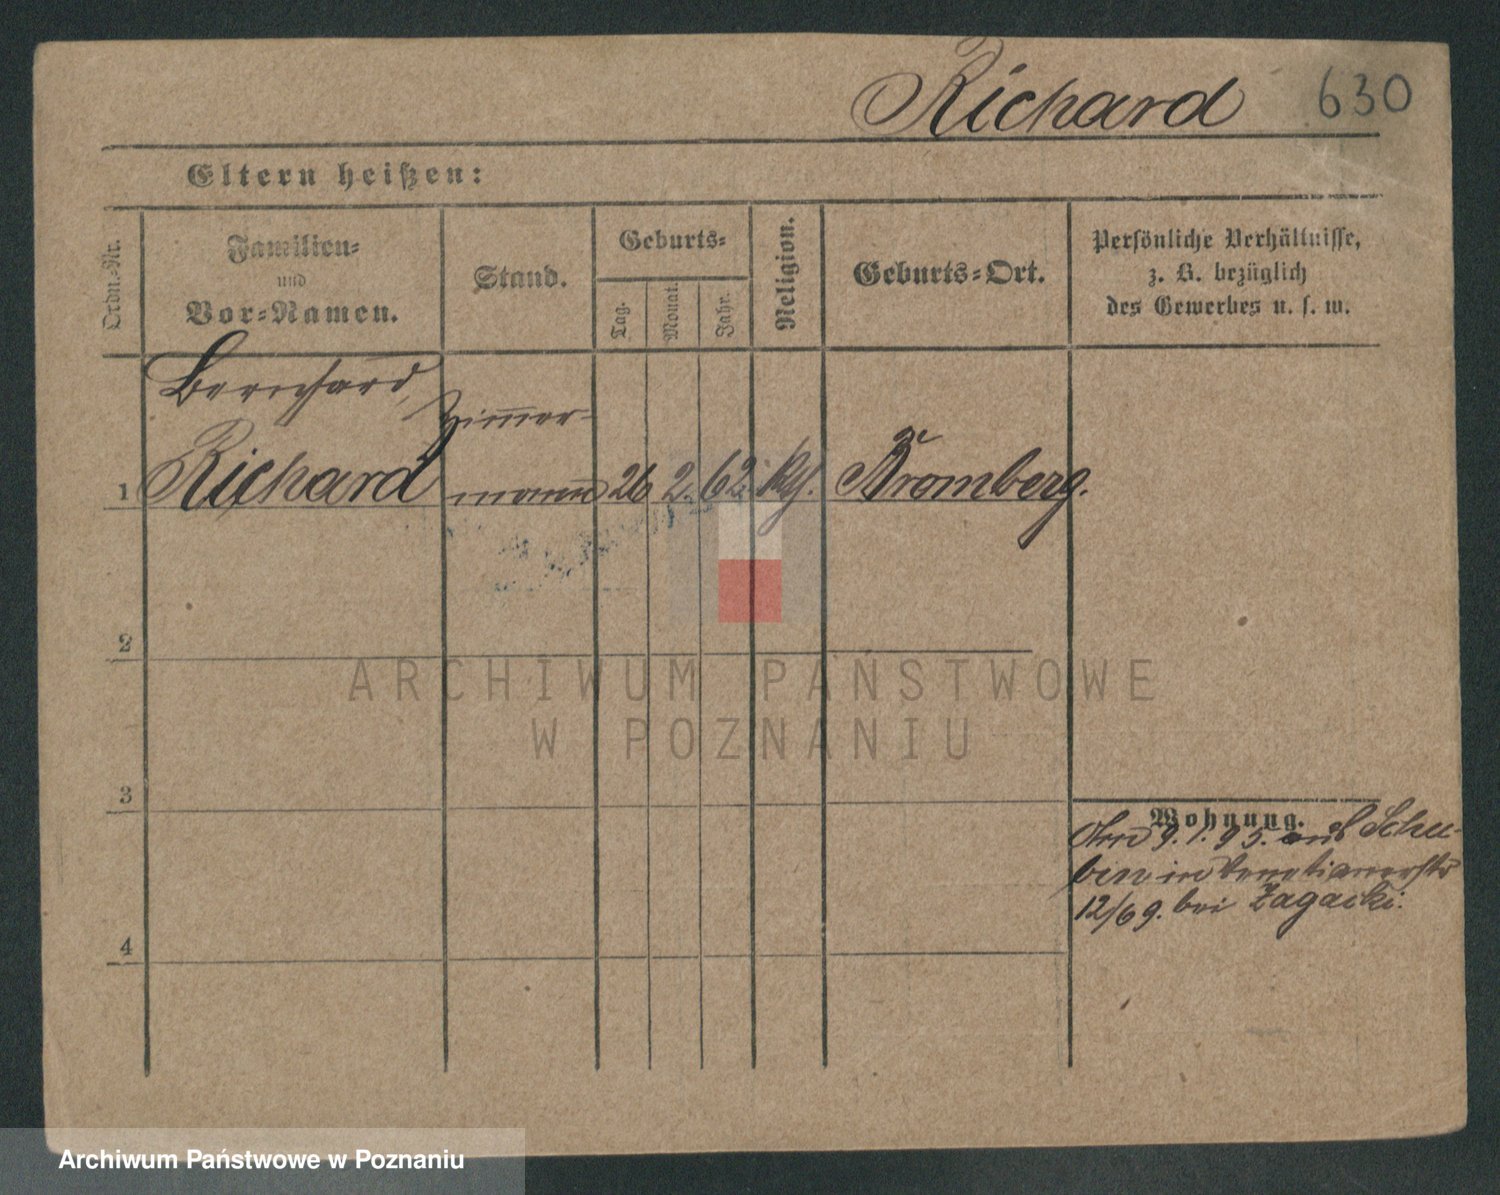 Richard 630
Eltern heißen:
Ordn.-Nr.
Familien-
und
Vor-Namen.
Stand.
Geburts-
Tag.
Monat.
Jahr.
Religion.
Geburts-Ort.
Persönliche Verhältnisse,
z. B. bezüglich
des Gewerbes u. s. w.
Bernhard,
Zimmer-
1 Richard mann 26 2. 62. Bromberg.
2
3
4
Wohnung.
9. 1. 95. aus Schu-
bin in Venetianerstr
12/69. bei Zagacki.
ARCHIWUM PAŃSTWOWE
W POZNANIU
Archiwum Państwowe w Poznaniu